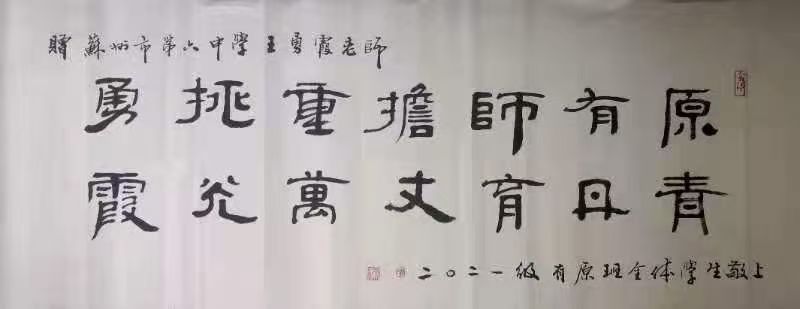 贈蘇州市第六中學王勇霞老師
勇挑重擔師有原
霞光萬丈育丹青
二〇二一級有原班全体學生敬上